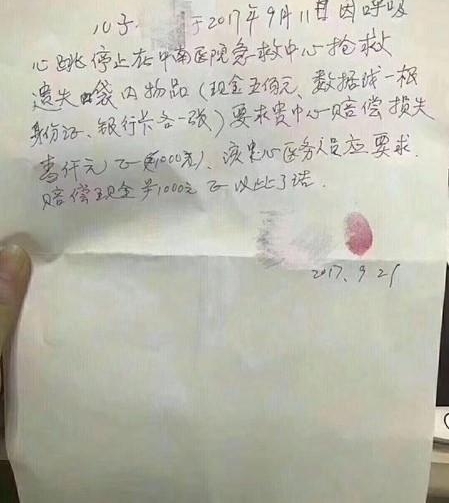 儿子 于2017年9月11日因呼吸
心跳停止在中南医院急救中心抢救
遗失口袋内物品(现金五佰元、数据线一根
身份证、银行卡各一张)要求贵中心赔偿损失
壹仟元正(¥1000元)、该中心医务人员应要求
赔偿现金¥1000元正以此了结.
2017.9.21